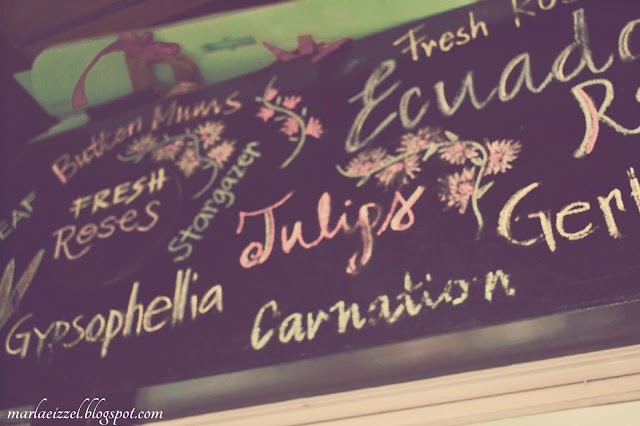 Fresh
Ecuado
Button Mums
FRESH
Roses
Stargazer
Tulips
Gypsophellia
Carnation
marlaeizzel.blogspot.com